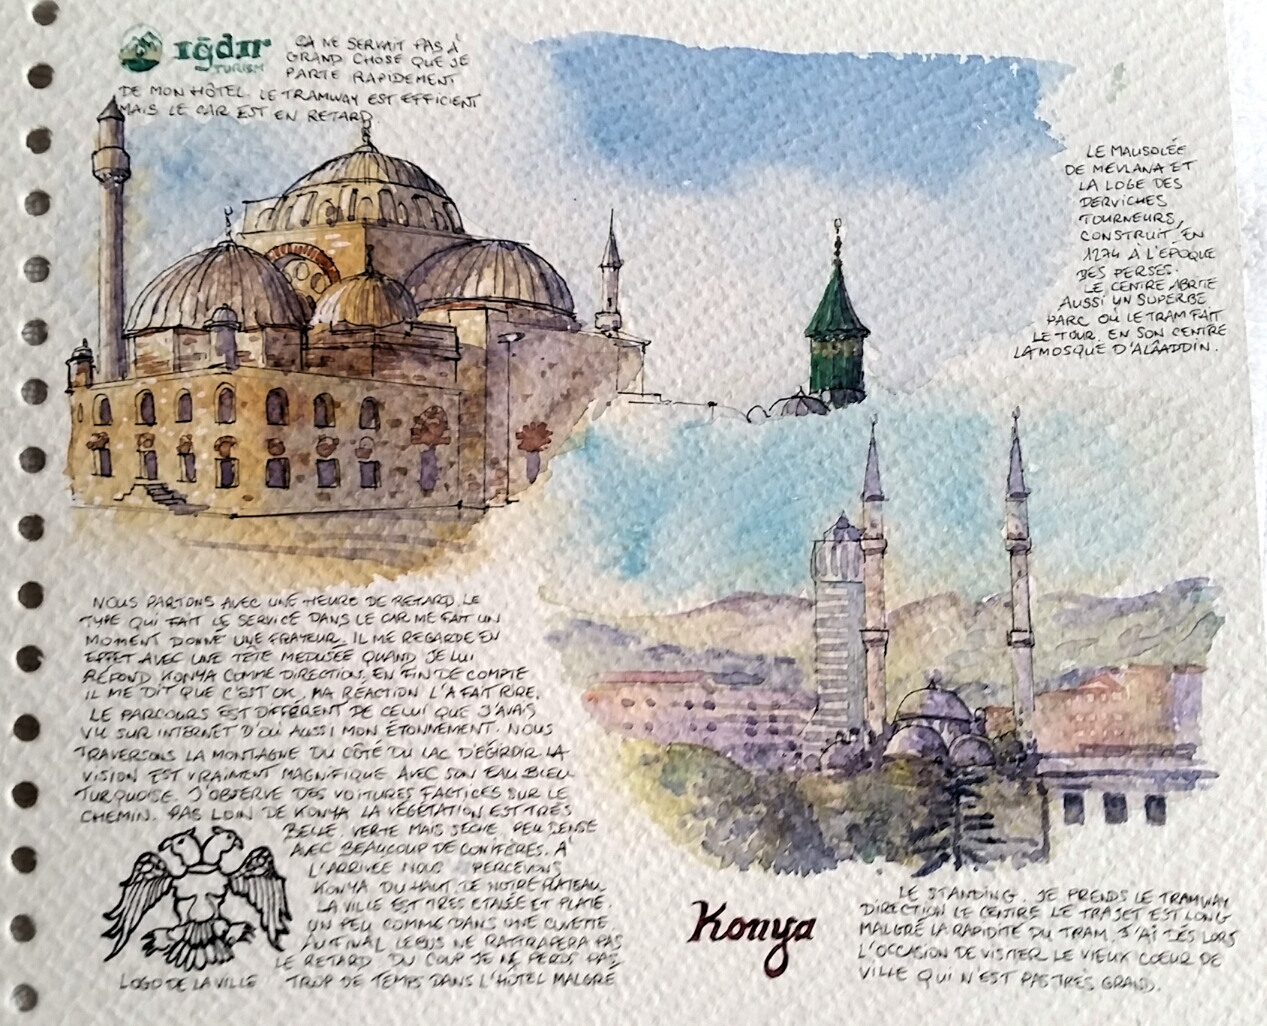 IĞDIR
TURISM
ÇA NE SERVAIT PAS À
GRAND CHOSE QUE JE
PARTE RAPIDEMENT
DE MON HÔTEL. LE TRAMWAY EST EFFICIENT
MAIS LE CAR EST EN RETARD.
LE MAUSOLÉE
DE MEVLANA ET
LA LOGE DES
DERVICHES
TOURNEURS,
CONSTRUIT EN
1274 À L'ÉPOQUE
DES PERSES.
LE CENTRE ABRITE
AUSSI UN SUPERBE
PARC OÙ LE TRAM FAIT
LE TOUR. EN SON CENTRE
LA MOSQUE D'ALÂADDIN.
NOUS PARTONS AVEC UNE HEURE DE RETARD. LE
TYPE QUI FAIT LE SERVICE DANS LE CAR ME FAIT UN
MOMENT DONNÉ UNE FRAYEUR. IL ME REGARDE EN
EFFET AVEC UNE TÊTE MEDUSÉE QUAND JE LUI
RÉPOND KONYA COMME DIRECTION. EN FIN DE COMPTE
IL ME DIT QUE C'EST OK. MA RÉACTION L'A FAIT RIRE.
LE PARCOURS EST DIFFÉRENT DE CELUI QUE J'AVAIS
VU SUR INTERNET D'OÙ AUSSI MON ÉTONNEMENT. NOUS
TRAVERSONS LA MONTAGNE DU CÔTÉ DU LAC D'ÉGIRDIR LA
VISION EST VRAIMENT MAGNIFIQUE AVEC SON EAU BLEU
TURQUOISE. J'OBSERVE DES VOITURES FACTICES SUR LE
CHEMIN. PAS LOIN DE KONYA LA VÉGÉTATION EST TRÈS
BELLE. VERTE MAIS SÈCHE, PEU DENSE
AVEC BEAUCOUP DE CONIFÈRES. À
L'ARRIVÉE NOUS PERCEVONS
KONYA DU HAUT DE NOTRE PLATEAU
LA VILLE EST TRÈS ETALÉE ET PLATE.
UN PEU COMME DANS UNE CUVETTE.
AU FINAL LE BUS NE RATTRAPERA PAS
LE RETARD DU COUP JE NE PERDS PAS
TROP DE TEMPS DANS L'HÔTEL MALGRÉ
LOGO DE LA VILLE
Konya
LE STANDING. JE PRENDS LE TRAMWAY
DIRECTION LE CENTRE LE TRAJET EST LONG
MALGRÉ LA RAPIDITÉ DU TRAM. J'AI DÈS LORS
L'OCCASION DE VISITER LE VIEUX COEUR DE
VILLE QUI N'EST PAS TRÈS GRAND.